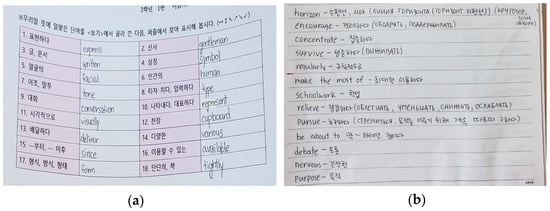 3학년 1반
※우리말 뜻에 알맞은 단어를 <보기>에서 골라 쓴 다음, 퍼즐에서 찾아 표시해 봅시다.
1. 표현하다 express 2. 신사 gentleman
3. 글, 문서 written 4. 상징 symbol
5. 얼굴의 facial 6. 인간의 human
7. 어조, 말투 tone 8. 타자 치다, 입력하다 type
9. 대화 conversation 10. 나타내다, 대표하다 represent
11. 시각적으로 visually 12. 찬장 cupboard
13. 배달하다 deliver 14. 다양한 various
15. …부터, …이후 since 16. 이용할 수 있는 available
17. 형식, 방식, 형태 form 18. 단단히, 꽉 tightly
(a)
horizon - 수평선, 시야
encourage - 격려하다
concentrate - 집중하다
survive - 생존하다
regularly - 규칙적으로
make the most of - 최대한 이용하다
schoolwork - 학업
relieve - 경감하다
Pursue - 추구하다
be about to 막 ~하려던 참이다
debate - 토론
nervous - 긴장한
purpose - 목적
(b)